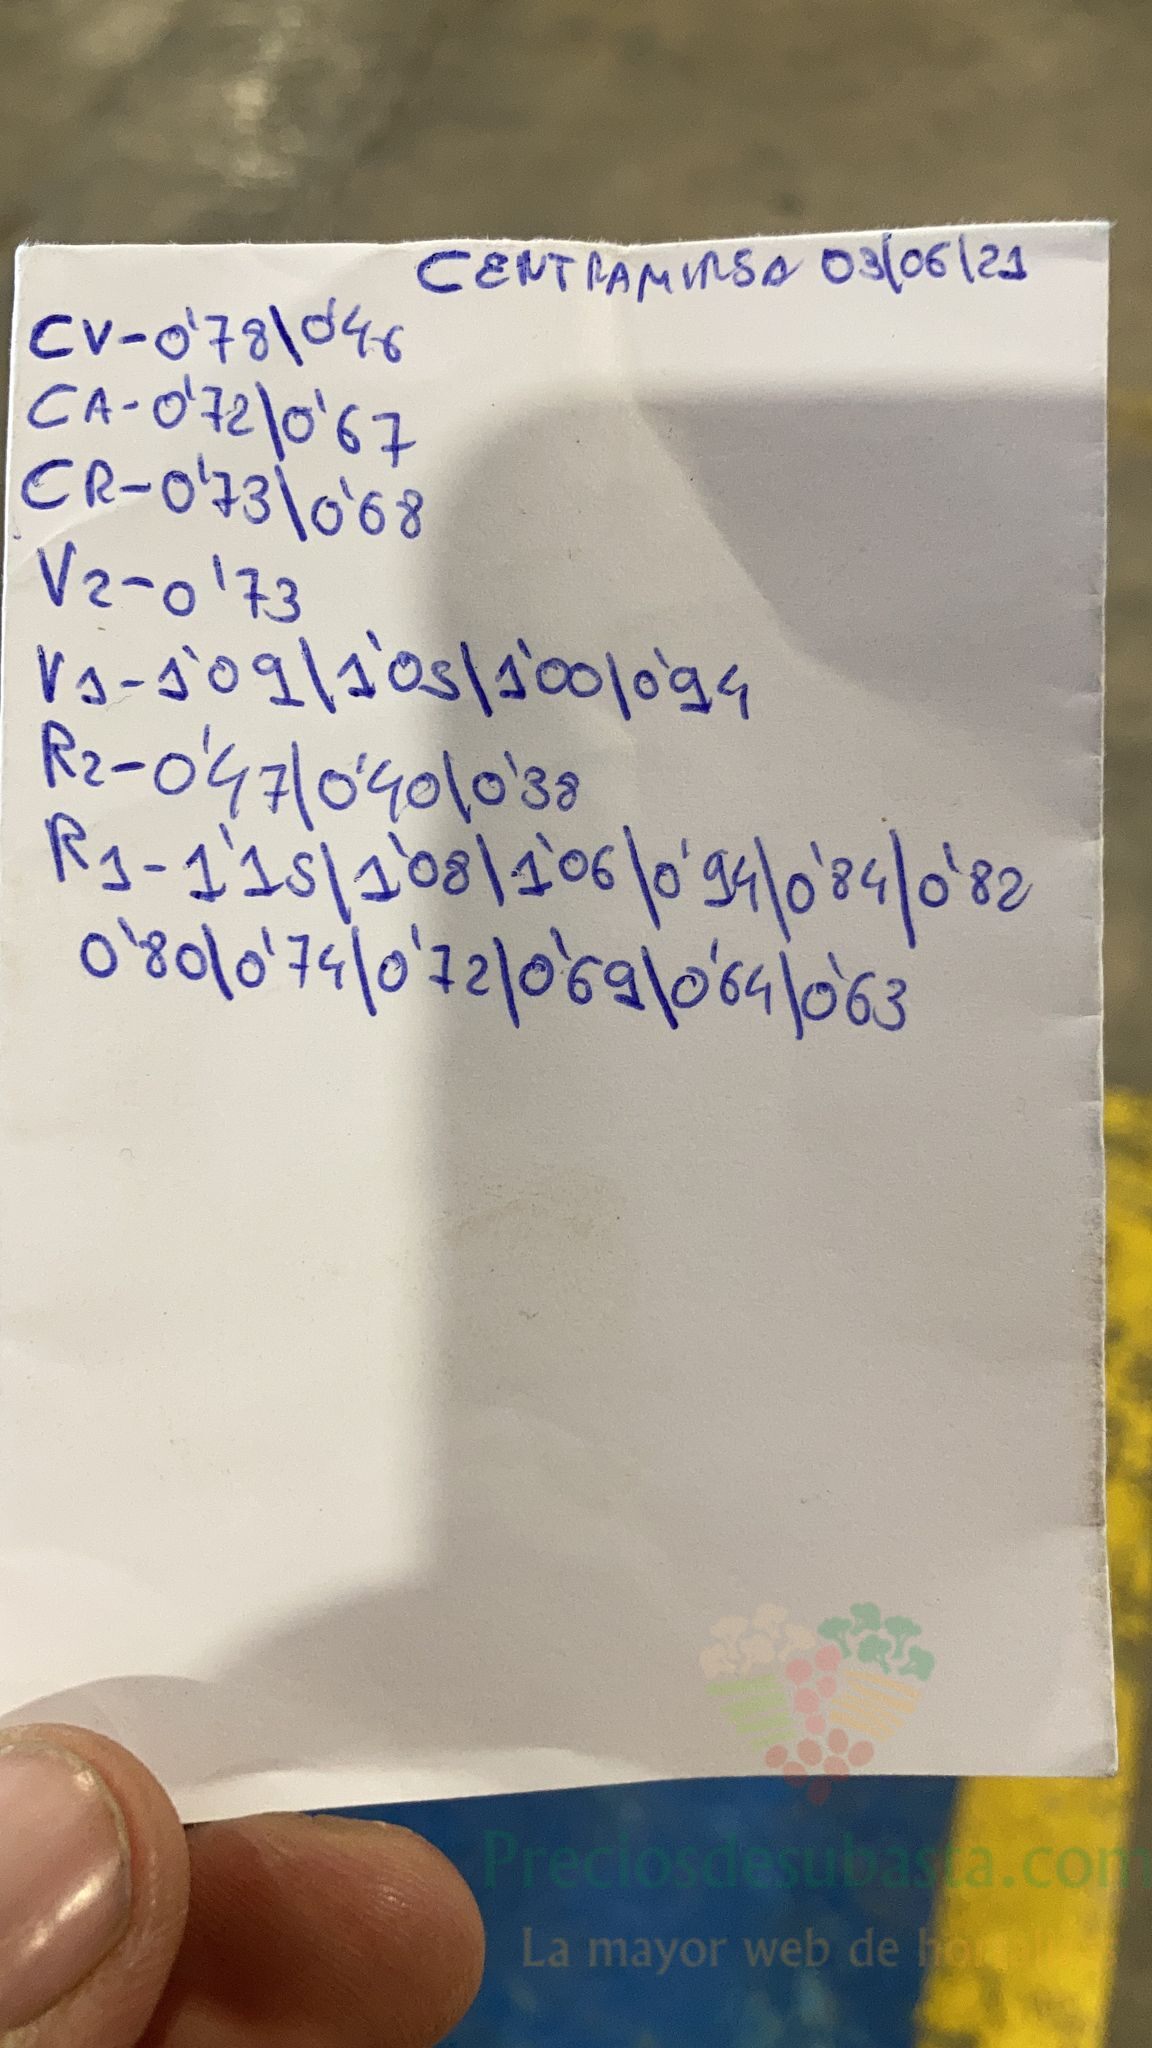 CENTRAMIRSA 03/06/21
CV-0'78\0'46
CA-0'72\0'67
CR-0'73\0'68
V2-0'73
V1-1'09\1'05\1'00\0'94
R2-0'47\0'40\0'38
R1-1'15\1'08\1'06\0'94\0'84\0'82
0'80\0'74\0'72\0'69\0'64\0'63
Preciosdesubasta.com
La mayor web de